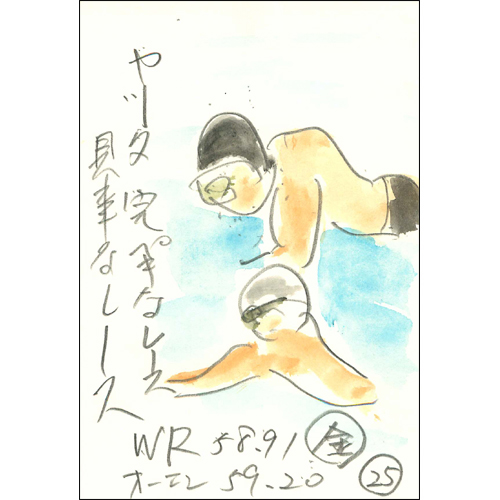 ヤッタ 完ペキなレース
見事なレース
WR 58.91 金
オーエン 59.20
25